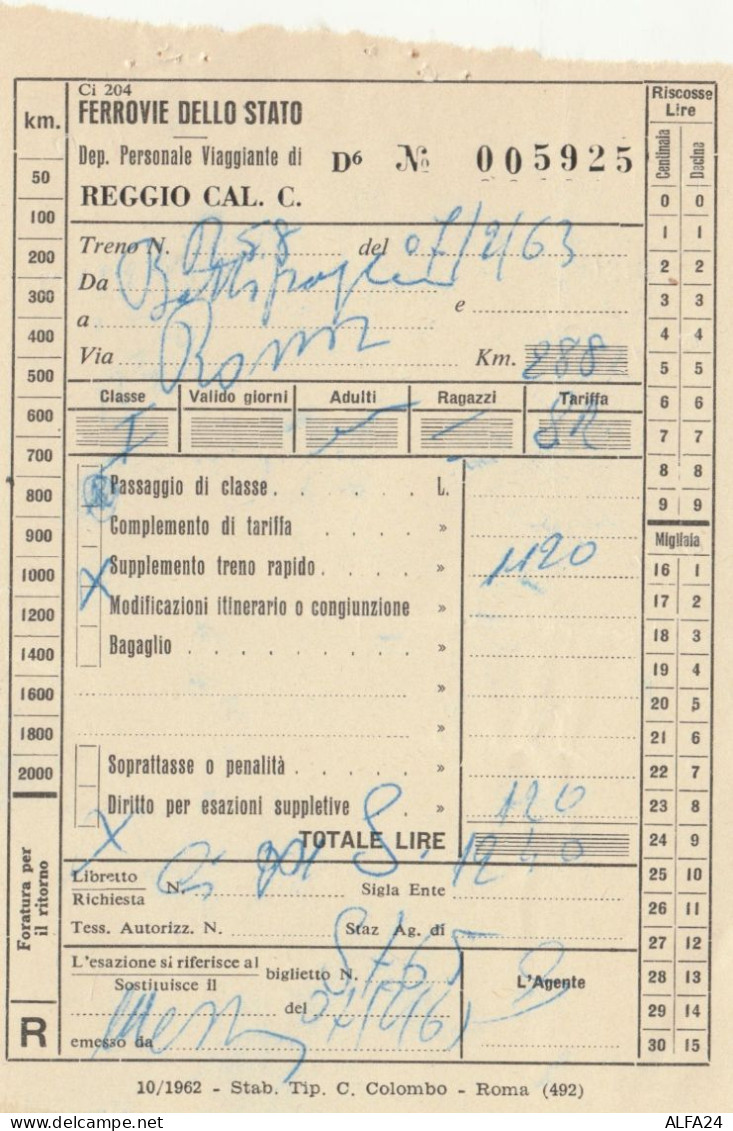 Ci 204
FERROVIE DELLO STATO
Dep. Personale Viaggiante di
REGGIO CAL. C.
D⁶ № 005925
Treno N. R58 del 07/2/63
Da Battipaglia
a e
Via Roma Km. 288
Classe Valido giorni Adulti Ragazzi Tariffa
I
Passaggio di classe L.
Complemento di tariffa »
X Supplemento treno rapido » 1120
Modificazioni itinerario o congiunzione »
Bagaglio »
»
»
Soprattasse o penalità »
X Diritto per esazioni suppletive » 120
TOTALE LIRE 1240
Libretto
Richiesta N. Sigla Ente
Tess. Autorizz. N. Staz Ag. di
L'esazione si riferisce al
Sostituisce il biglietto N. 5765
del
emesso da
L'Agente
km.
50
100
200
300
400
500
600
700
800
900
1000
1200
1400
1600
1800
2000
Foratura per
il ritorno
R
Riscosse
Lire
Centinaia Decine
0 0
1 1
2 2
3 3
4 4
5 5
6 6
7 7
8 8
9 9
Migliaia
16 1
17 2
18 3
19 4
20 5
21 6
22 7
23 8
24 9
25 10
26 11
27 12
28 13
29 14
30 15
10/1962 - Stab. Tip. C. Colombo - Roma (492)
delcampe.net
ALFA24